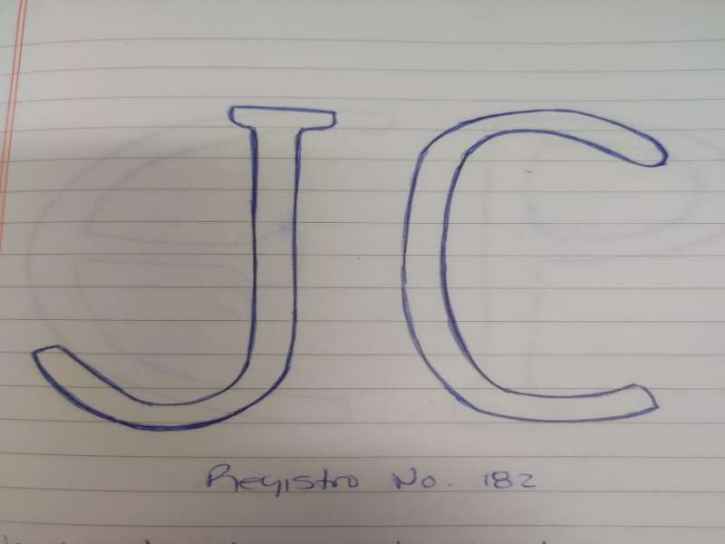 JC
Registro No. 182